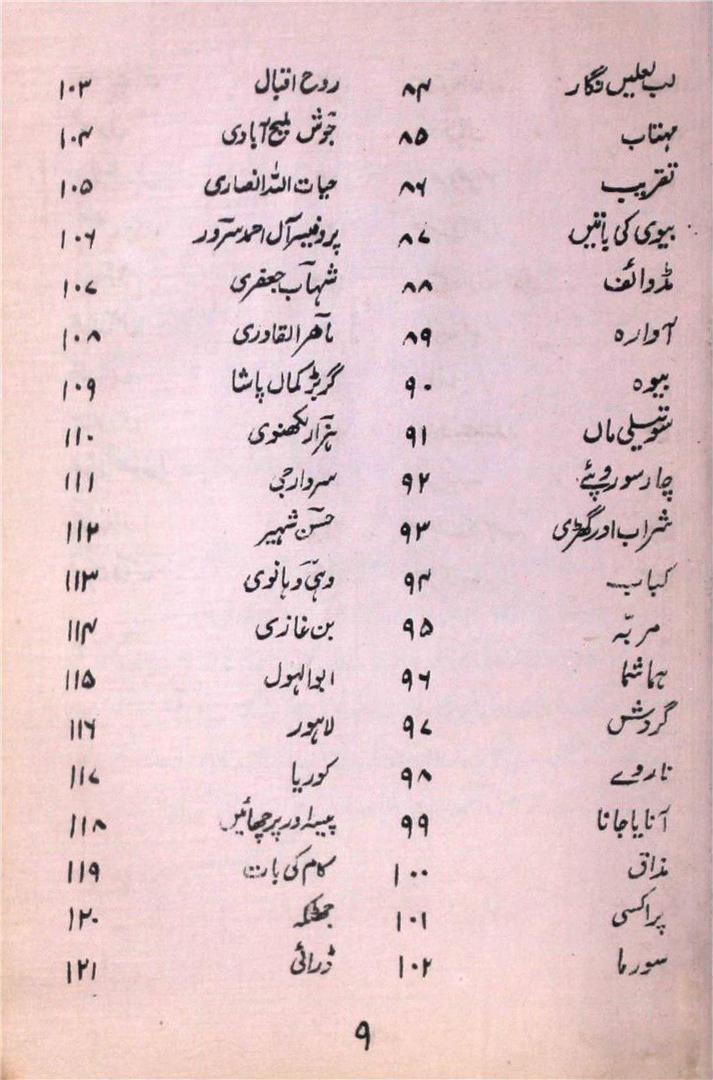 لب لعلیں نگار ۸۴
مہتاب ۸۵
تقریب ۸۶
بیوی کی باتیں ۸۷
مڈوائف ۸۸
آوارہ ۸۹
بیوہ ۹۰
سوتیلی ماں ۹۱
چار سو روپئے ۹۲
شراب اور گھڑی ۹۳
کباب ۹۴
مربّہ ۹۵
ہماشما ۹۶
گردش ۹۷
ناروے ۹۸
آنا یا جانا ۹۹
مذاق ۱۰۰
پراکسی ۱۰۱
سورما ۱۰۲
روح اقبال ۱۰۳
جوشؔ ملیح آبادی ۱۰۴
حیات اللہ انصاری ۱۰۵
پروفیسر آل احمد سرورؔ ۱۰۶
شہابؔ جعفری ۱۰۷
ماہرؔ القادری ۱۰۸
گربڑ کمال پاشا ۱۰۹
ہزارؔ لکھنوی ۱۱۰
سردار جی ۱۱۱
حسنؔ شہیر ۱۱۲
وہیؔ وہانوی ۱۱۳
بن غازی ۱۱۴
ابوالہول ۱۱۵
لاہور ۱۱۶
کوریا ۱۱۷
پیسہ اور پرچھائیں ۱۱۸
کام کی بات ۱۱۹
جھٹکہ ۱۲۰
ڈرائی ۱۲۱
۹